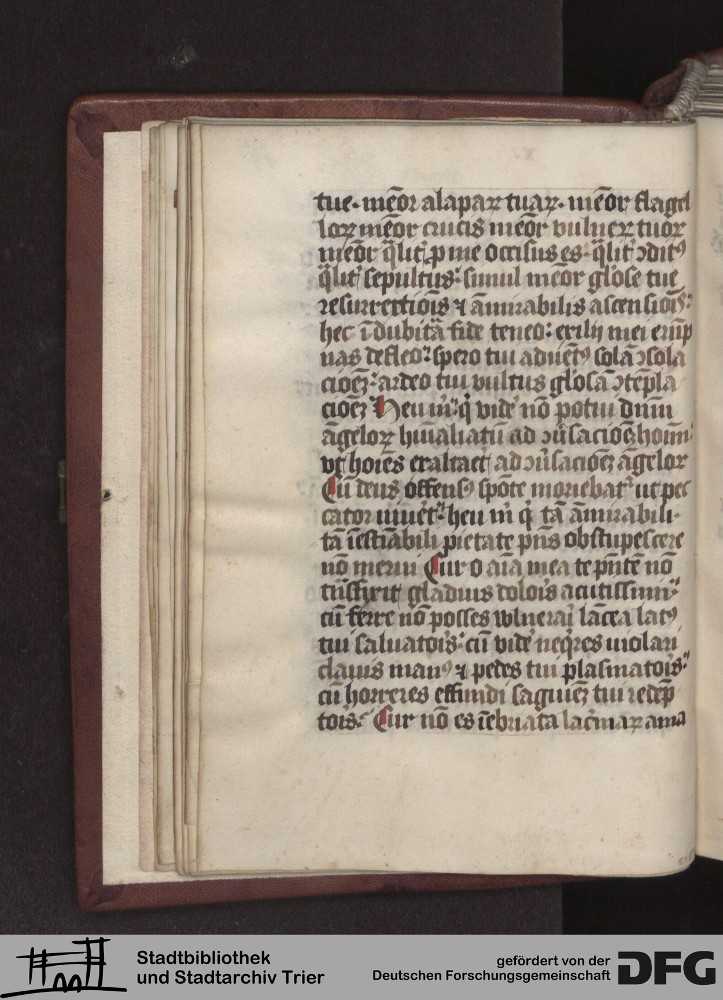 tue. mēor alapaꝝ tuaꝝ. mēor flagel
loꝝ mēor crucis mēor vulneꝝ tuoꝝ
mēor q̄lit᷑ ꝓ me occisus es. q̄lit᷑ ꝯditꝰ
q̄lit᷑ sepultus: simul mēor glōse tue
resurrectiōis ⁊ āmirabilis ascensiōis:
hec īdubitā fide teneo: exilij mei erūp
nas defleo: spero tui aduētꝰ solā ꝯsola
cioēꝫ: ardeo tui vultus glōsā ꝯtēpla
cioēꝫ Heu m̄: q̄ vide᷑ nō potui dnm̄
āgeloꝝ hūiliatū ad ꝯūsacioēꝫ hoīm
vt hoīes exaltaet ad ꝯūsacioēꝫ āgeloꝝ
Cū deus offensꝰ spōte moriebat᷑ ut pec
cator uiuēt: heu m̄ q̄ tā āmirabili.
tā īestīabili pietate p̄ns obstupescere
nō merui Cur o aīa mea te p̄nte nō
trāsfixit gladius dolois acutissimi:
cū ferre nō posses wlnerai lācea latꝰ
tui saluatois: cū vide᷑ neq̄res uiolari
clauis manꝰ ⁊ pedes tui plasmatois:
cū horreres effundi saguiēꝫ tui redēp
tois: Cur nō es īebriata lac̄maꝝ ama
Stadtbibliothek
und Stadtarchiv Trier
gefördert von der
Deutschen Forschungsgemeinschaft
DFG